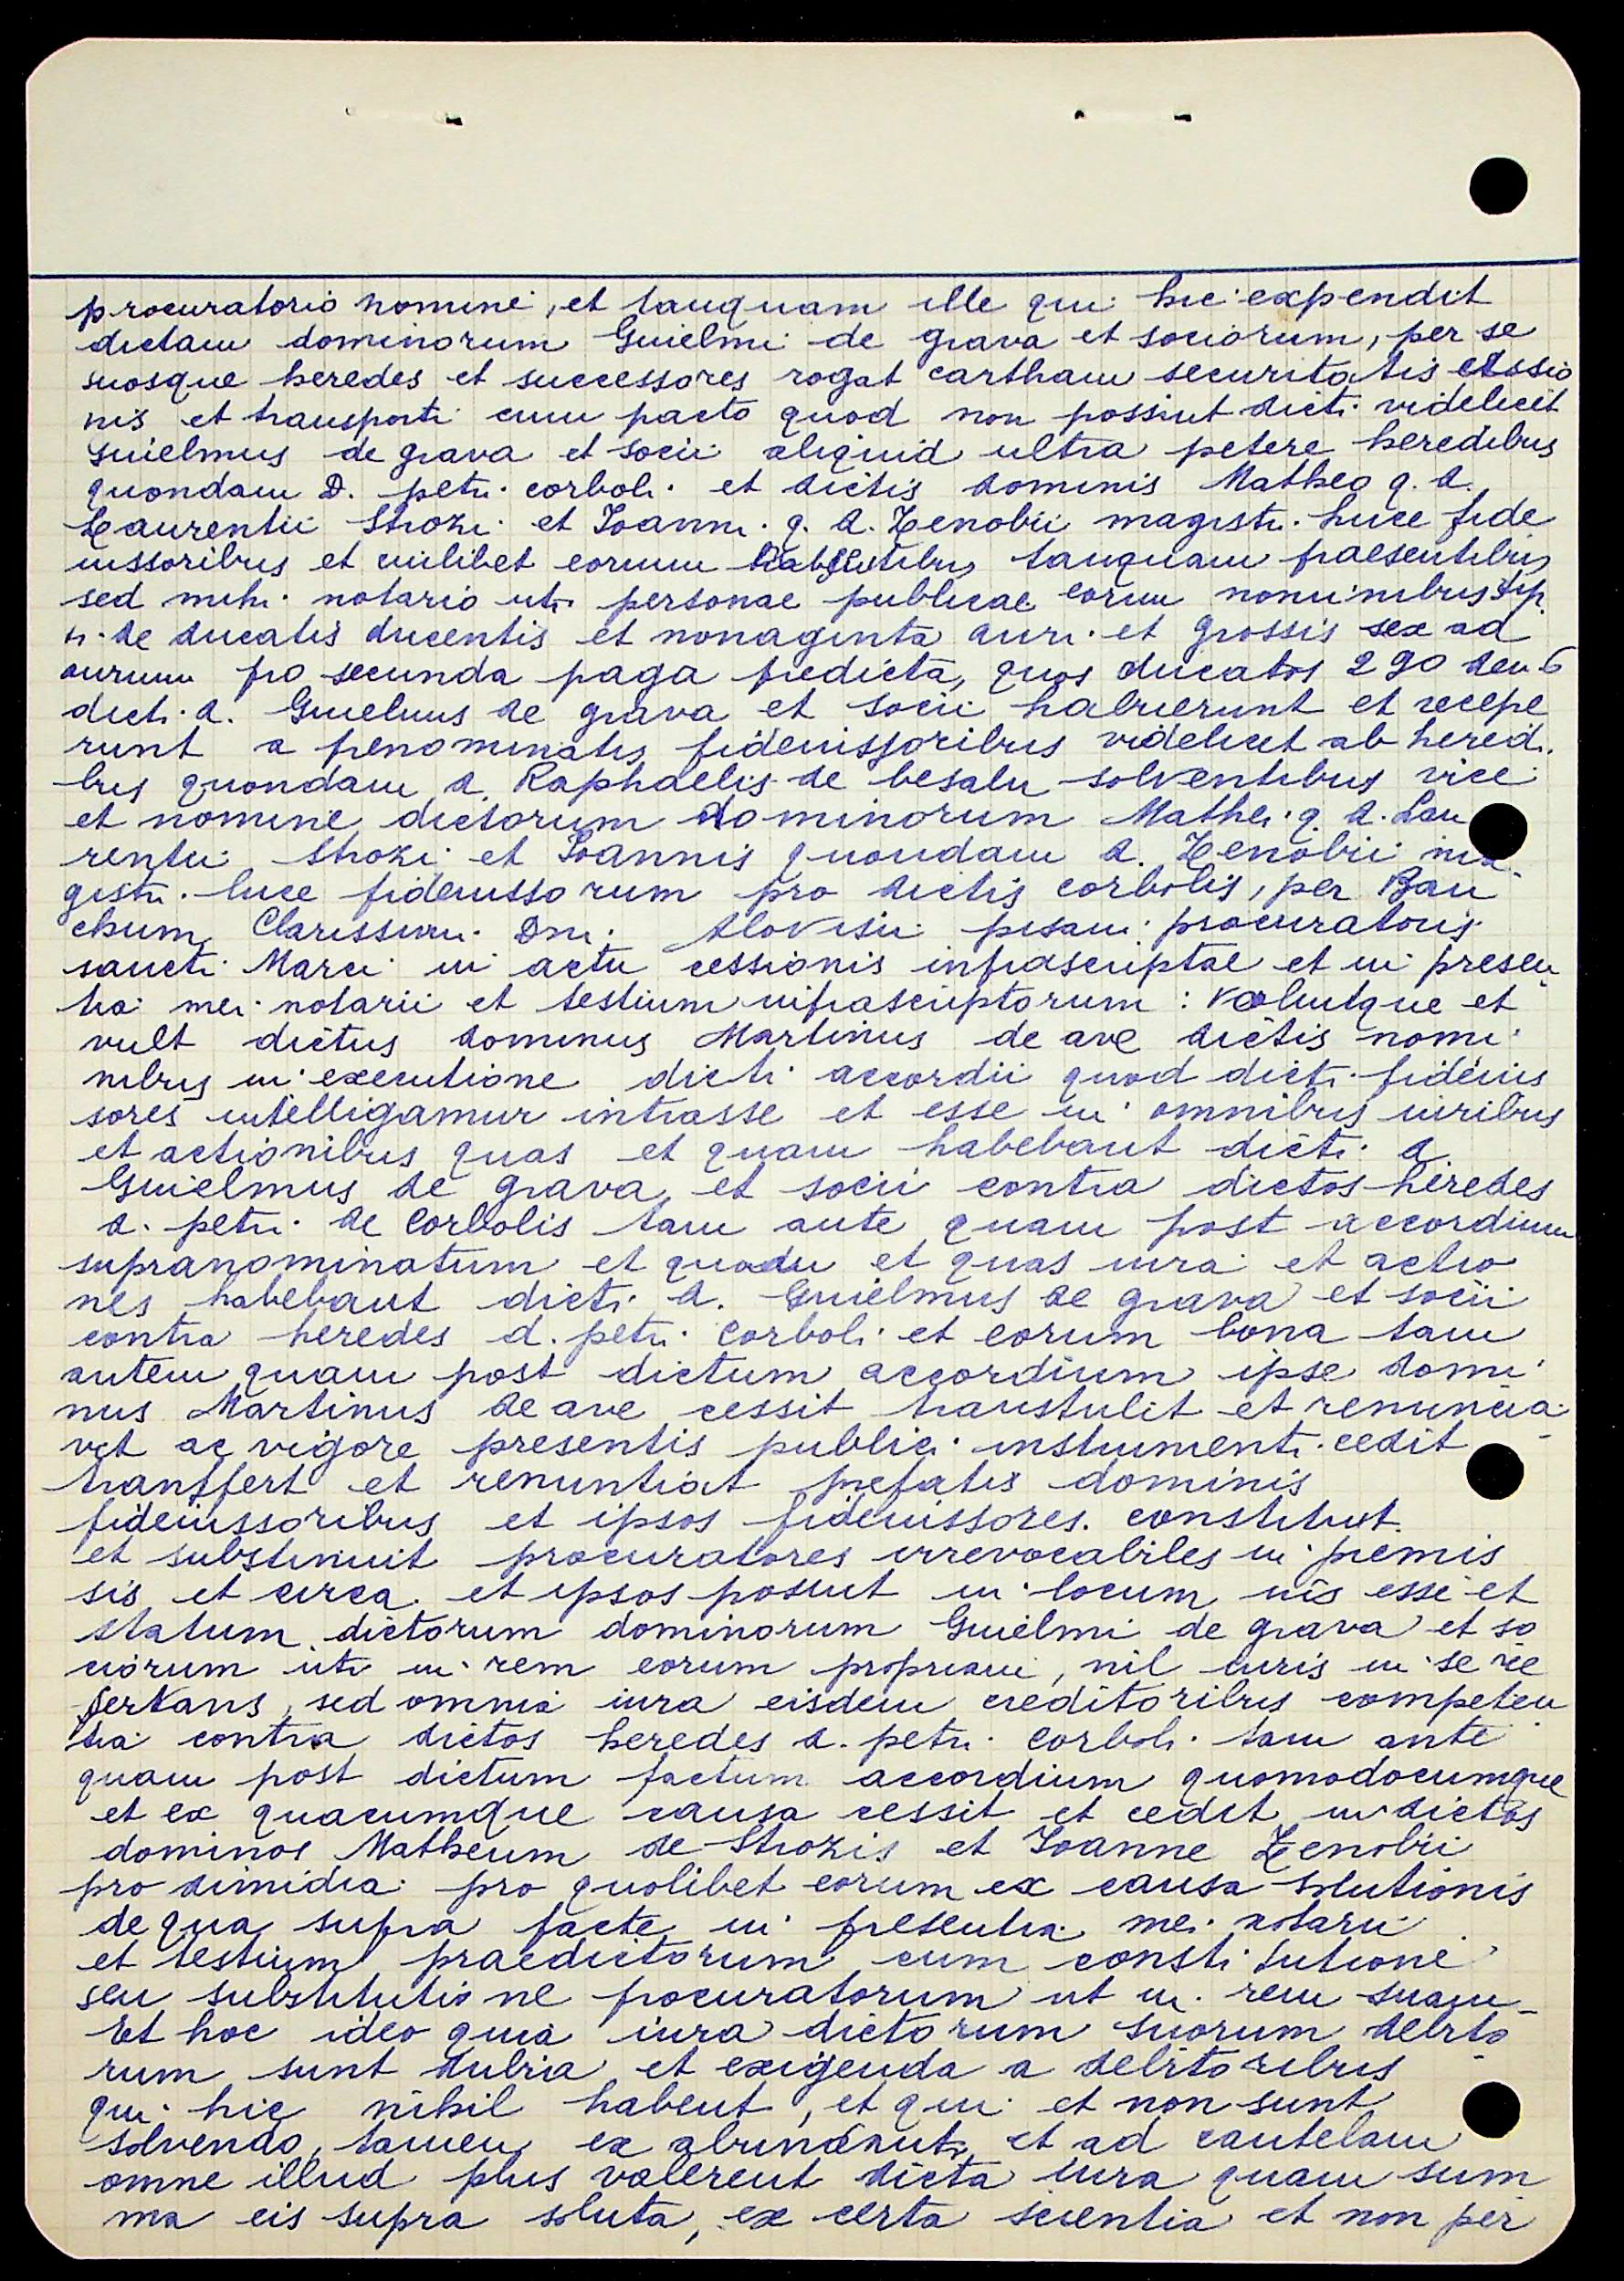 procuratorio nomine, et tanquam ille qui hic expendit
dictam dominorum Guielmi de grava et sociorum, per se
suosque heredes et successores rogat cartham securitatis cessio
nis et transporti cum pacto quod non possint dicti videlicet
guielmus de grava et socii aliquid ultra petere heredibus
quondam D. petri corboli et dictis dominis Matheo q. d.
Laurentii Strozi et Ioanni q. d. Zenobii magistri luce fide
iussoribus et cuilibet eorum absentibus tanquam praesentibus
sed mihi notario uti personae publicae eorum nominibus stip.
n. de ducatis ducentis et nonaginta auri et grossis sex ad
aurum pro secunda paga predicta, quos ducatos 290 den 6
dicti d. Guielmus de grava et socii habuerunt et recepe
runt a prenominatis fideiussoribus videlicet ab heredi
bus quondam d. Raphaelis de besalu solventibus vice
et nomine dictorum dominorum Mathei q. d. Lau
rentii Strozi et Ioannis quondam d. Zenobii ma
gistri luce fideiussorum pro dictis corbolis, per Ban
chum Clarissimi Dni. Alovisii pisani procuratoris
sancti Marci in actu cessionis infrascriptae et in presen
tia mei notarii et testium infrascriptorum: voluitque et
vult dictus dominus Martinus de ave dictis nomi
nibus in executione dicti accordii quod dicti fideius
sores intelligamur intrasse et esse in omnibus iuribus
et actionibus quas et quam habebant dicti d.
Guielmus de grava et socii contra dictos heredes
d. petri de Corbolis tam ante quam post accordium
supranominatum et quadu et quas iura et actio
nes habebant dicti d. Guielmus de grava et socii
contra heredes d. petri Corboli et eorum bona tam
autem quam post dictum accordium ipse domi
nus Martinus de ave cessit transtulit et renuncia
vit ac vigore presentis publici instrumenti cedit
transfert et renuntiat prefatis dominis
fideiussoribus et ipsos fideiussores. constituit
et substinuit procuratores irrevocabiles in premis
sis et circa et ipsos posuit in locum uis esse et
statum dictorum dominorum Guielmi de grava et so
ciorum uti in rem eorum propriam, nil curis in se re
servans, sed omnia iura eisdem creditoribus competen
tia contra dictos heredes d. petri Corboli tam ante
quam post dictum factum accordium quomodocumque
et ex quacumque causa cessit et cedit in dictos
dominos Matheum de Strozis et Ioanne Zenobii
pro dimidia pro quolibet eorum ex causa solutionis
de qua supra facte in presentia mei notarii
et testium praedictorum cum constitutione
seu substitutione procuratorum ut in rem suam
Et hoc ideo quia iura dictorum suorum debito
rum sunt dubia et exigenda a debitoribus
qui hic nihil habent, et qui et non sunt
solvendo, tamen ex abundanti et ad cautelam
omne illud plus valerent dicta iura quam sum
ma eis supra soluta, ex certa scientia et non per